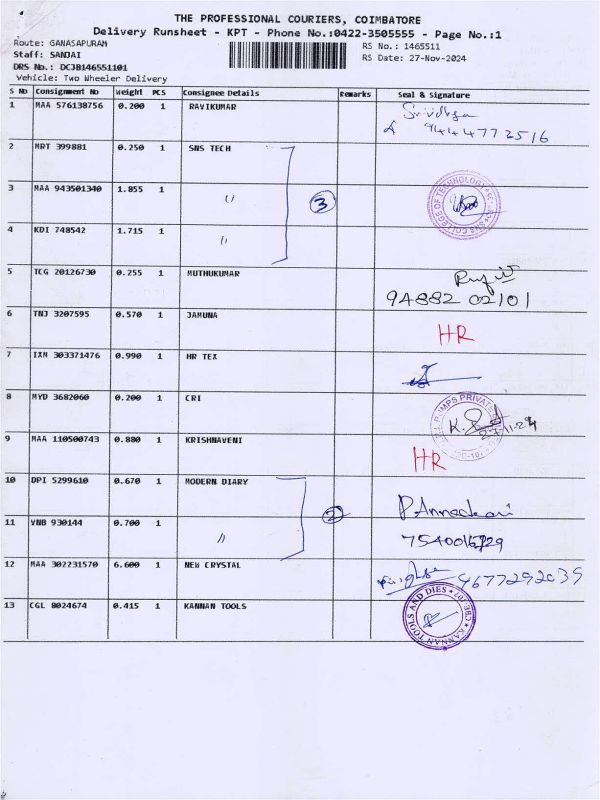 THE PROFESSIONAL COURIERS, COIMBATORE
Delivery Runsheet - KPT - Phone No.:0422-3505555 - Page No.:1
Route: GANASAPURAM
RS No.: 1465511
Staff: SANJAI
RS Date: 27-Nov-2024
DRS No.: DCJB146551101
Vehicle: Two Wheeler Delivery
S No Consignment No Weight PCS Consignee Details Remarks Seal & Signature
1 MAA 576138756 0.200 1 RAVIKUMAR Srividhya
9444772516
2 MRT 399881 0.250 1 SNS TECH
3 MAA 943501340 1.855 1 〃 3 SNS COLLEGE OF TECHNOLOGY
4 KDI 748542 1.715 1 〃
5 TCG 20126730 0.255 1 MUTHUKUMAR
94882 02101
6 TNJ 3207595 0.570 1 JAMUNA HR
7 IXM 303371476 0.990 1 HR TEX
8 MYD 3682060 0.200 1 CRI PUMPS PRIVATE
27.11.24
9 MAA 110500743 0.880 1 KRISHNAVENI HR
10 DPI 5299610 0.670 1 MODERN DIARY P. Annadurai
2
11 VNB 930144 0.700 1 〃
12 MAA 302231570 6.600 1 NEW CRYSTAL 9677292039
13 CGL 8024674 0.415 1 KANNAN TOOLS KANNAN TOOLS AND DIES CBE-07